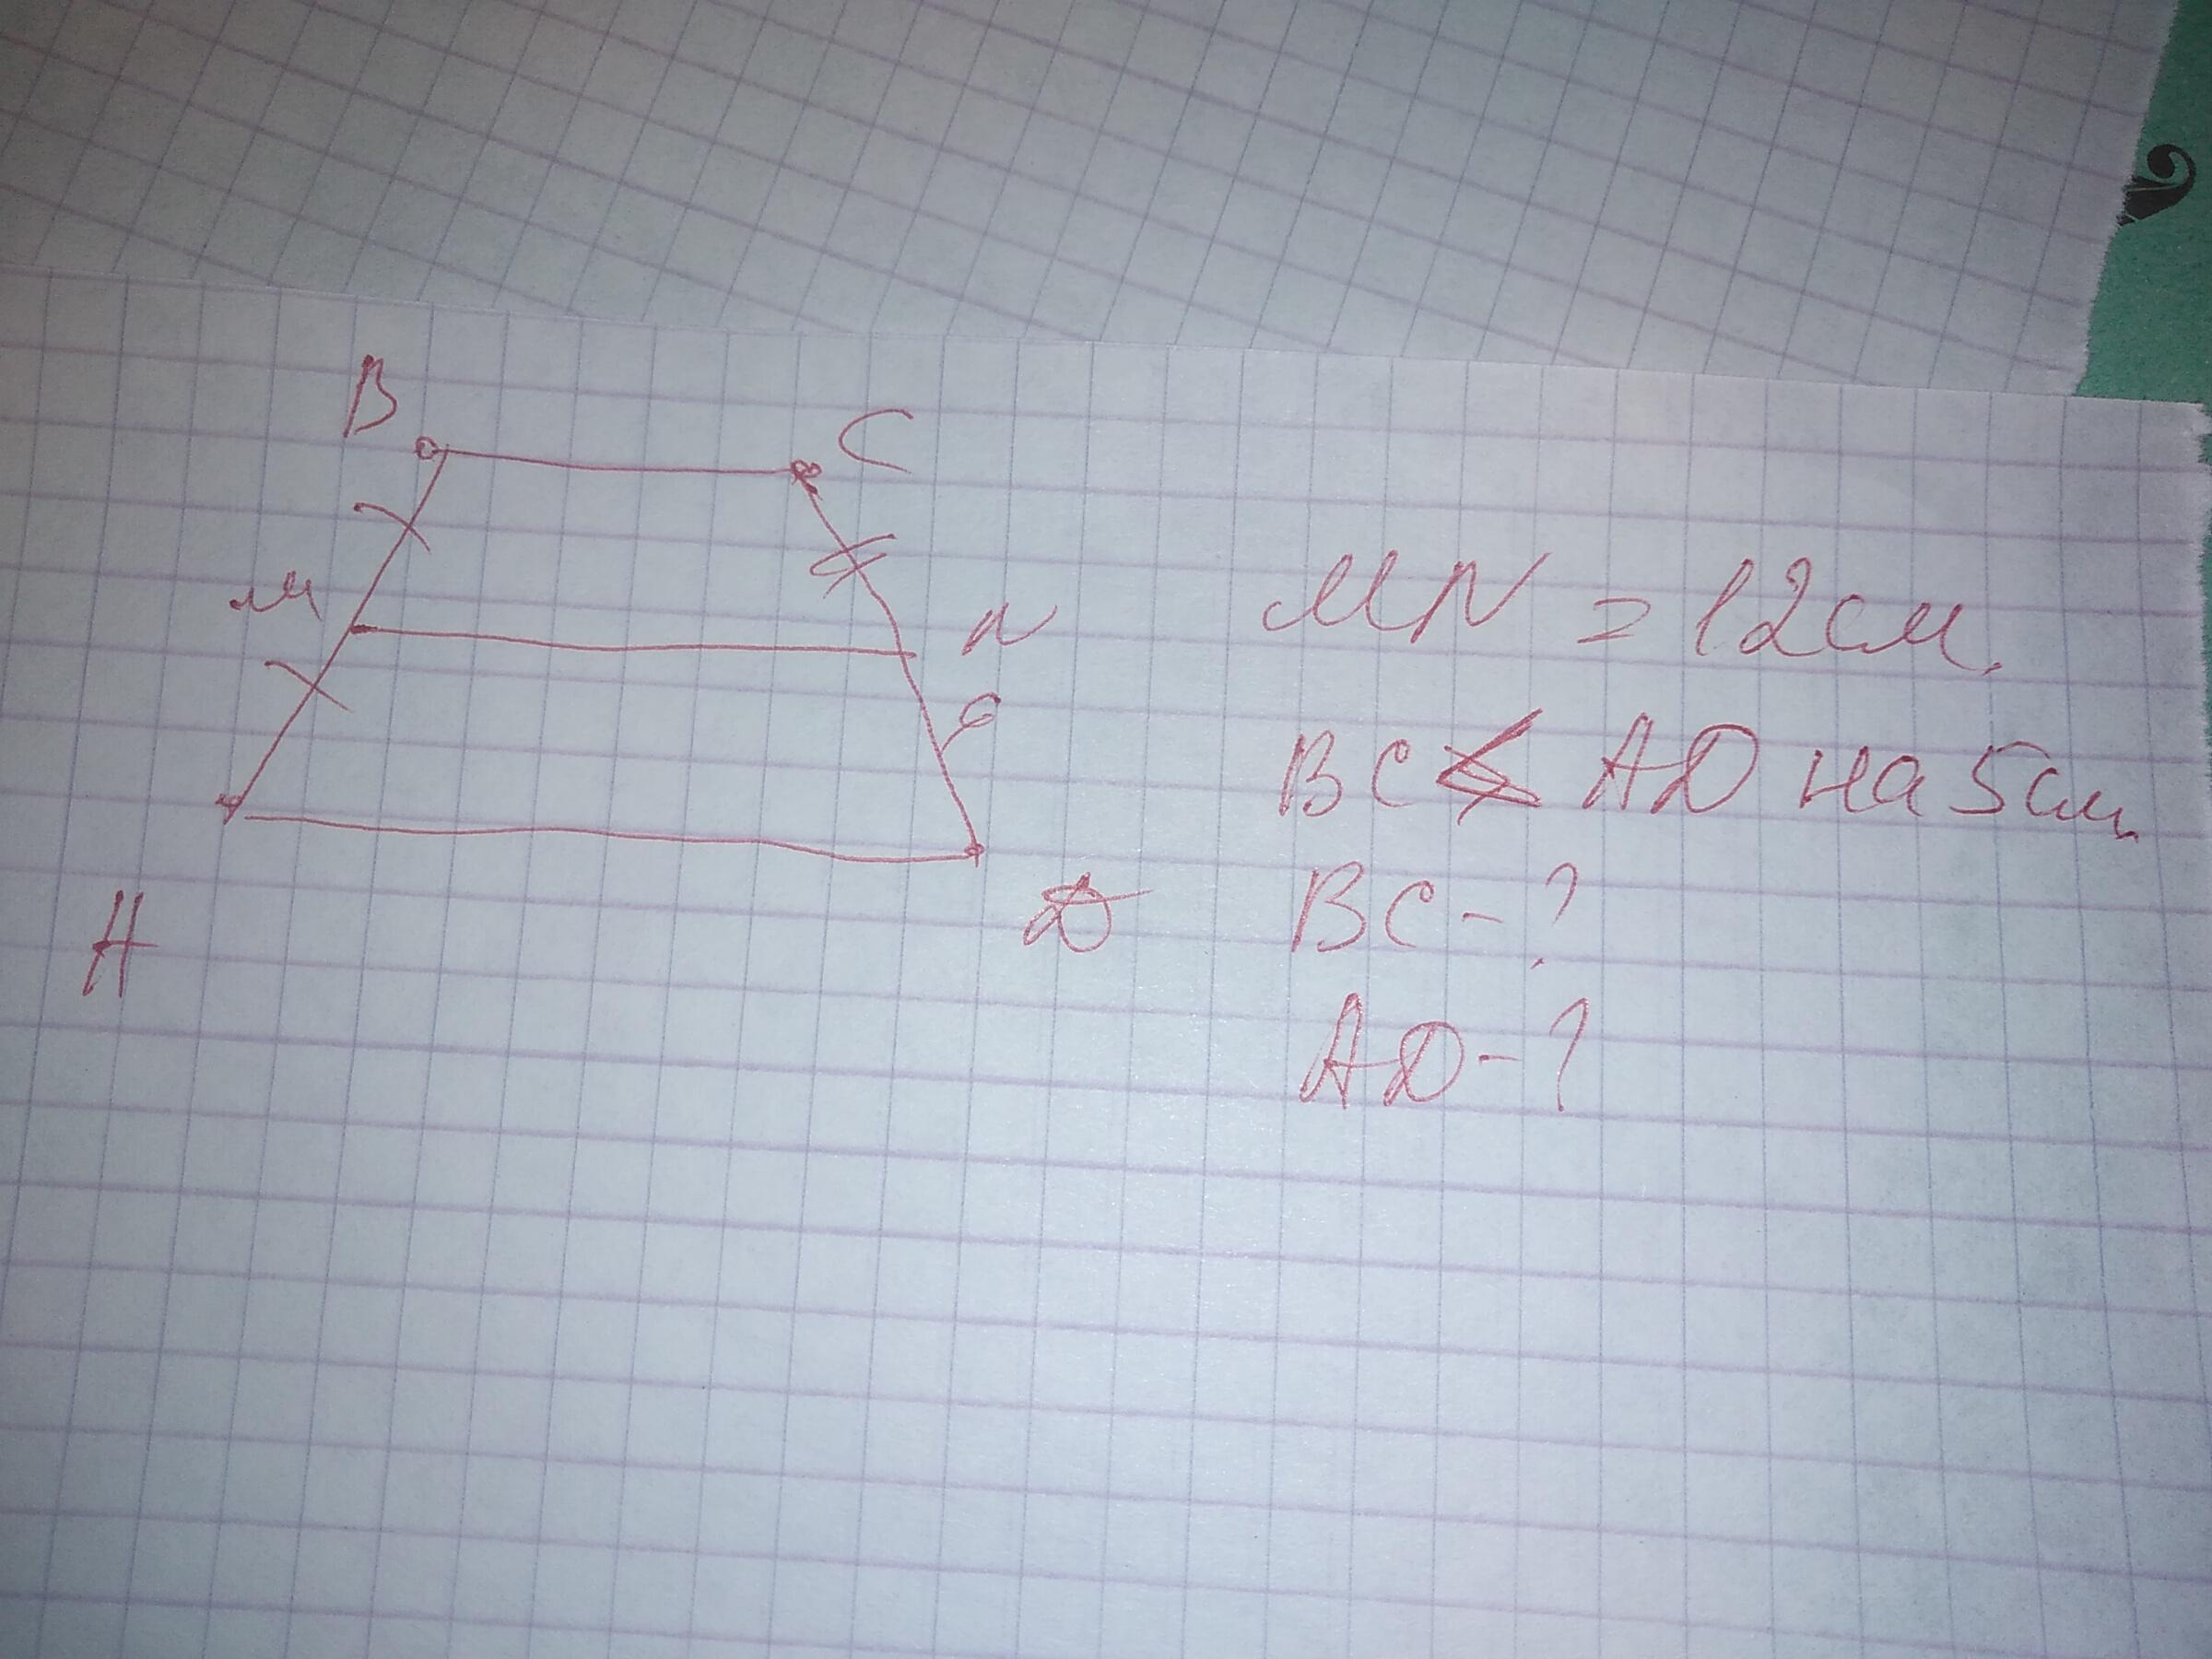 B
C
M
N
A
D
MN = 12 см.
BC < AD на 5 см.
BC - ?
AD - ?